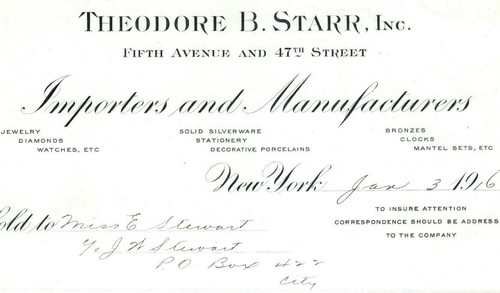 THEODORE B. STARR, INC.
FIFTH AVENUE AND 47TH STREET
Importers and Manufacturers
JEWELRY
DIAMONDS
WATCHES, ETC
SOLID SILVERWARE
STATIONERY
DECORATIVE PORCELAINS
BRONZES
CLOCKS
MANTEL SETS, ETC
New York Jan 3 1916
TO INSURE ATTENTION
CORRESPONDENCE SHOULD BE ADDRESS
TO THE COMPANY
old to Miss E Stewart
c/o J W Stewart
P.O. Box 422
City